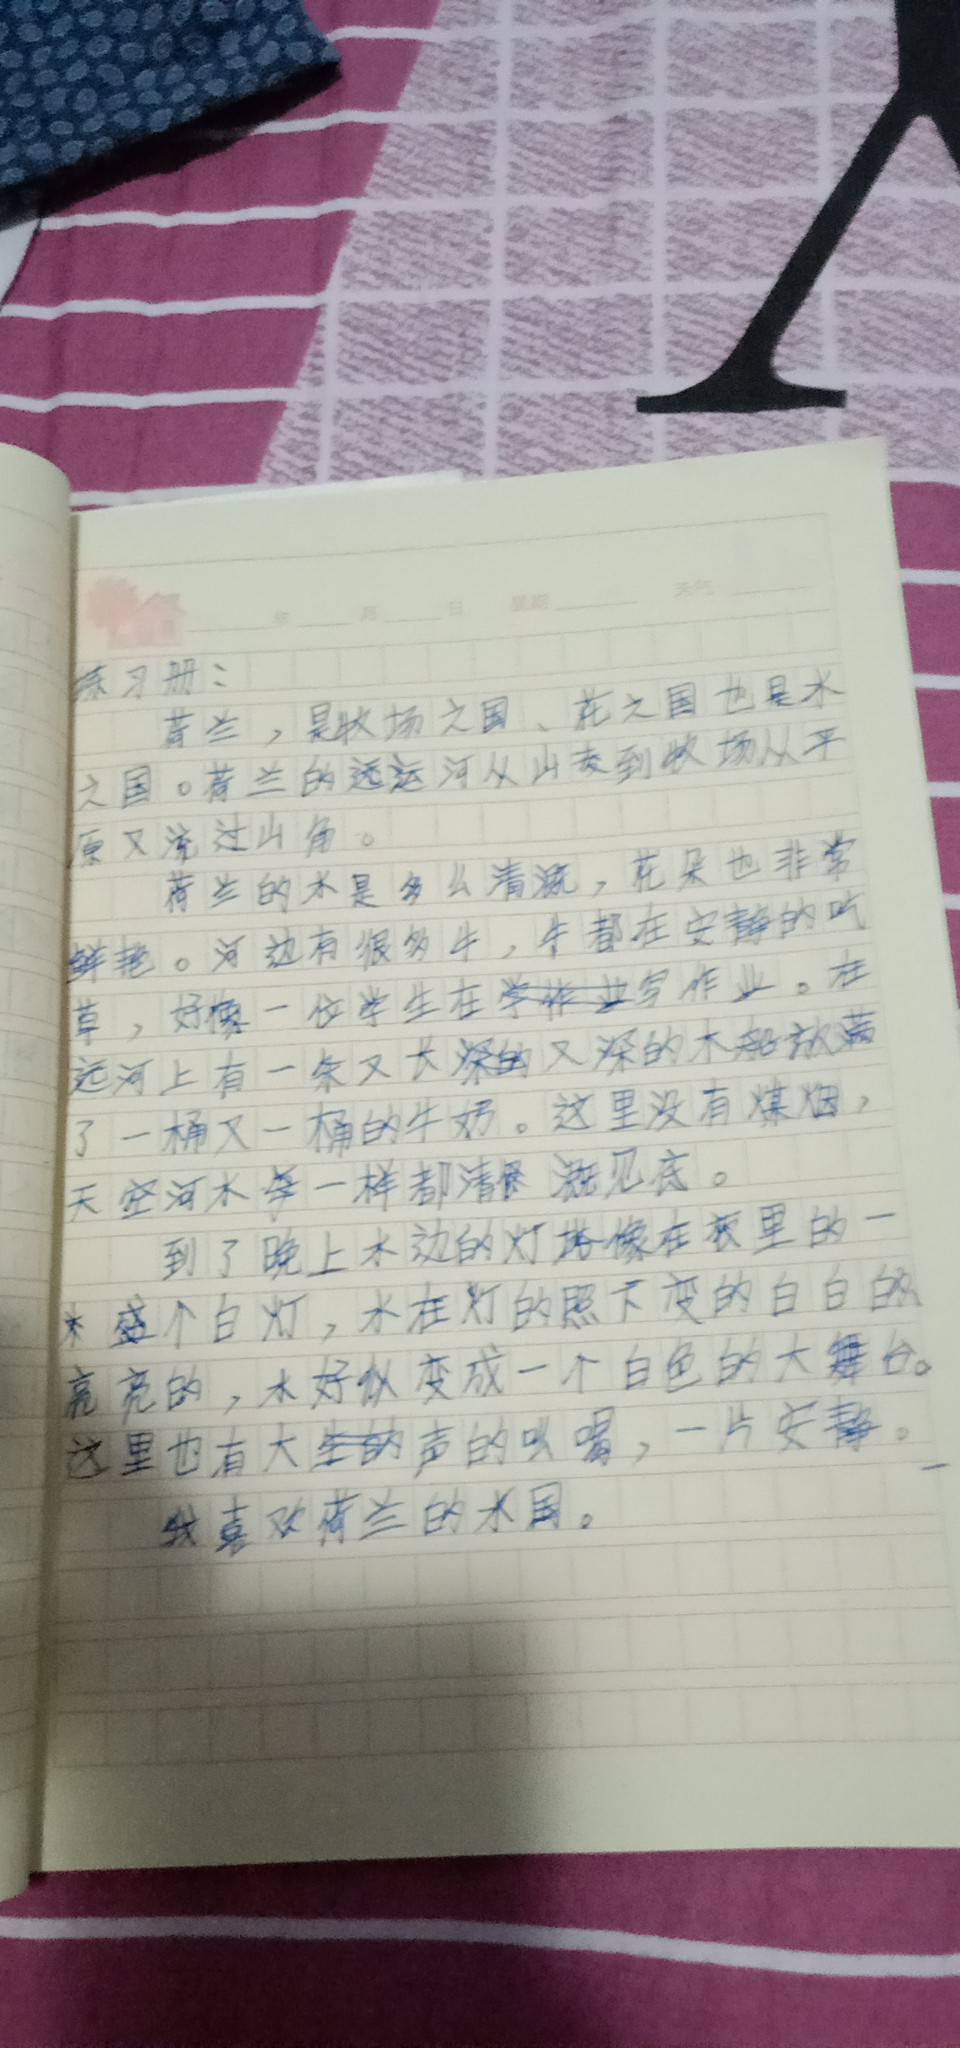 年 月 日 星期 天气
练习册：
荷兰，是牧场之国、花之国也是水
之国。荷兰的运河从山麦到牧场从平
原又流过山角。
荷兰的水是多么清澈，花朵也非常
鲜艳。河边有很多牛，牛都在安静的吃
草，好像一位学生在写作业。在
运河上有一条又长又深的木船放满
了一桶又一桶的牛奶。这里没有煤烟，
天空河水一样都清澈见底。
到了晚上水边的灯塔像在夜里的一
盛个白灯，水在灯的照下变的白白的
亮亮的，水好似变成一个白色的大舞台。
这里也有大声的叫喝，一片安静。
我喜欢荷兰的水国。